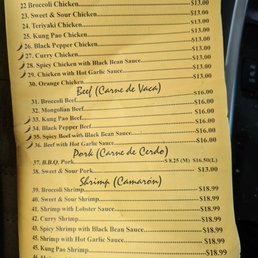 22 Broccoli Chicken $13.00
23. Sweet & Sour Chicken $13.00
24. Teriyaki Chicken $13.00
25. Kung Pao Chicken $13.00
26. Black Pepper Chicken $13.00
27. Curry Chicken $13.00
28. Spicy Chicken with Black Bean Sauce $13.00
29. Chicken with Hot Garlic Sauce $13.00
30. Orange Chicken $13.00
Beef (Carne de Vaca)
31. Broccoli Beef $16.00
32. Mongolian Beef $16.00
33. Kung Pao Beef $16.00
34. Black Pepper Beef $16.00
35. Spicy Beef with Black Bean Sauce $16.00
36. Beef with Hot Garlic Sauce $16.00
Pork (Carne de Cerdo)
37. B.B.Q. Pork $ 8.25 (M) $16.50(L)
38. Sweet & Sour Pork $13.00
Shrimp (Camarón)
39. Broccoli Shrimp $18.99
40. Sweet & Sour Shrimp $18.99
41. Shrimp with Lobster Sauce $18.99
42. Curry Shrimp $18.99
43. Spicy Shrimp with Black Bean Sauce $18.99
44. Shrimp with Hot Garlic Sauce $18.99
45. Kung Pao Shrimp $18.99